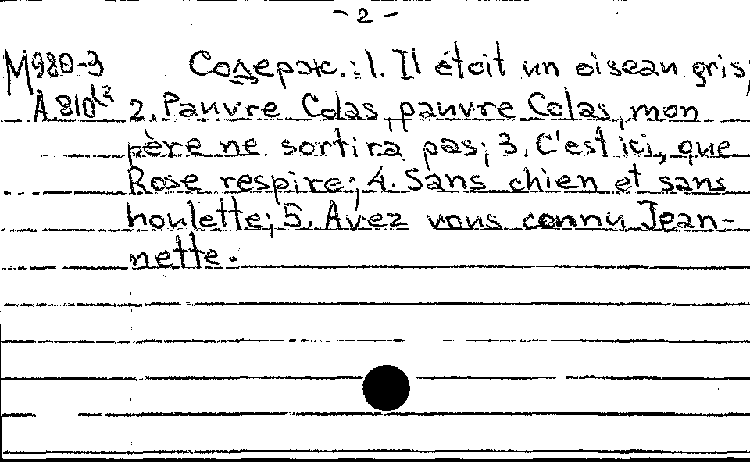 - 2 -
М980-3 Содерж.: 1. Il étoit un oiseau gris;
А 810 2. Pauvre Colas, pauvre Colas, mon
père ne sortira pas; 3. C'est ici, que
Rose respire; 4. Sans chien et sans
houlette; 5. Avez vous connu Jean-
nette.